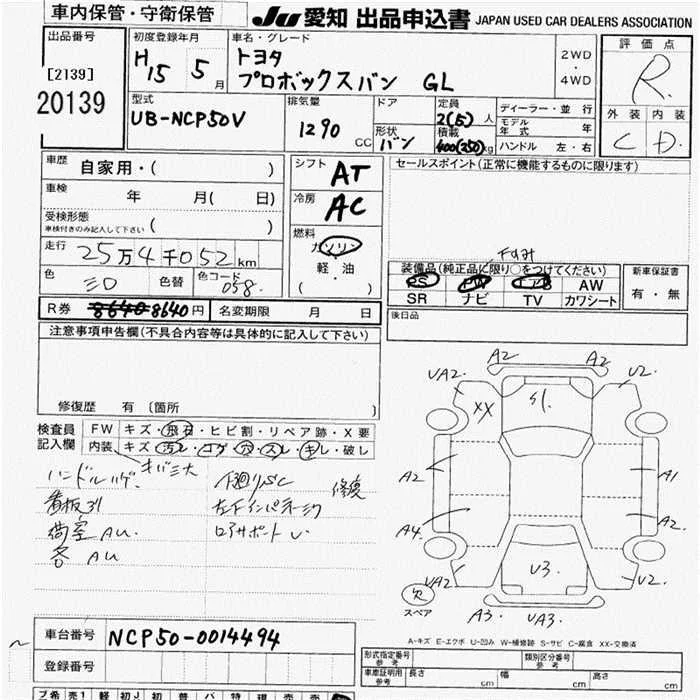 車内保管・守衛保管
JU 愛知 出品申込書 JAPAN USED CAR DEALERS ASSOCIATION
出品番号
[2139]
20139
初度登録年月
H15 5 月
車名・グレード
トヨタ
プロボックスバン GL
2WD
・
4WD
評価点
R
外装 内装
C D
型式
UB-NCP50V
排気量
1290 CC
ドア
形状
バン
定員
2(5) 人
積載
400(250)kg
ディーラー・並行
モデル年式 年
ハンドル 左・右
車歴
自家用・( )
車検 年 月(日)
受検形態
車検付きのみ記入して下さい ( )
走行 25万4千052km
色 シロ 色替 色コード 058
シフト AT
冷房 AC
燃料
ガソリン
軽・油
( )
セールスポイント(正常に機能するものに限ります)
装備品(純正品に限り○をつけてください)
PS PW エアB AW
SR ナビ TV カワシート
新車保証書
有・無
R券 8640 8640円 名変期限 月 日
後日品
注意事項申告欄(不具合内容等は具体的に記入して下さい)
修復歴 有 〔箇所 〕
検査員
記入欄
FW キズ・飛石・ヒビ割・リペア跡・X要
内装 キズ・汚レ・コゲ・穴・スレ・キレ・破レ
ハンドルハゲ
キバミ大
看板跡
荷室AU
下廻りSC
左下インパネ
修復
ロアサポート U
A2 A2
UA2 U2
XX
S1
A2 A1
A4 A2
U3
UA2 U2
A3 UA3
欠
スペア
A-キズ E-エクボ U-凹み W-補修跡 S-サビ C-腐食 XX-交換済
車台番号 NCP50-0014494
登録番号
型式指定番号
参考
類別区分番号
参考
車庫証明用
参考
長さ cm 幅 cm 高さ cm